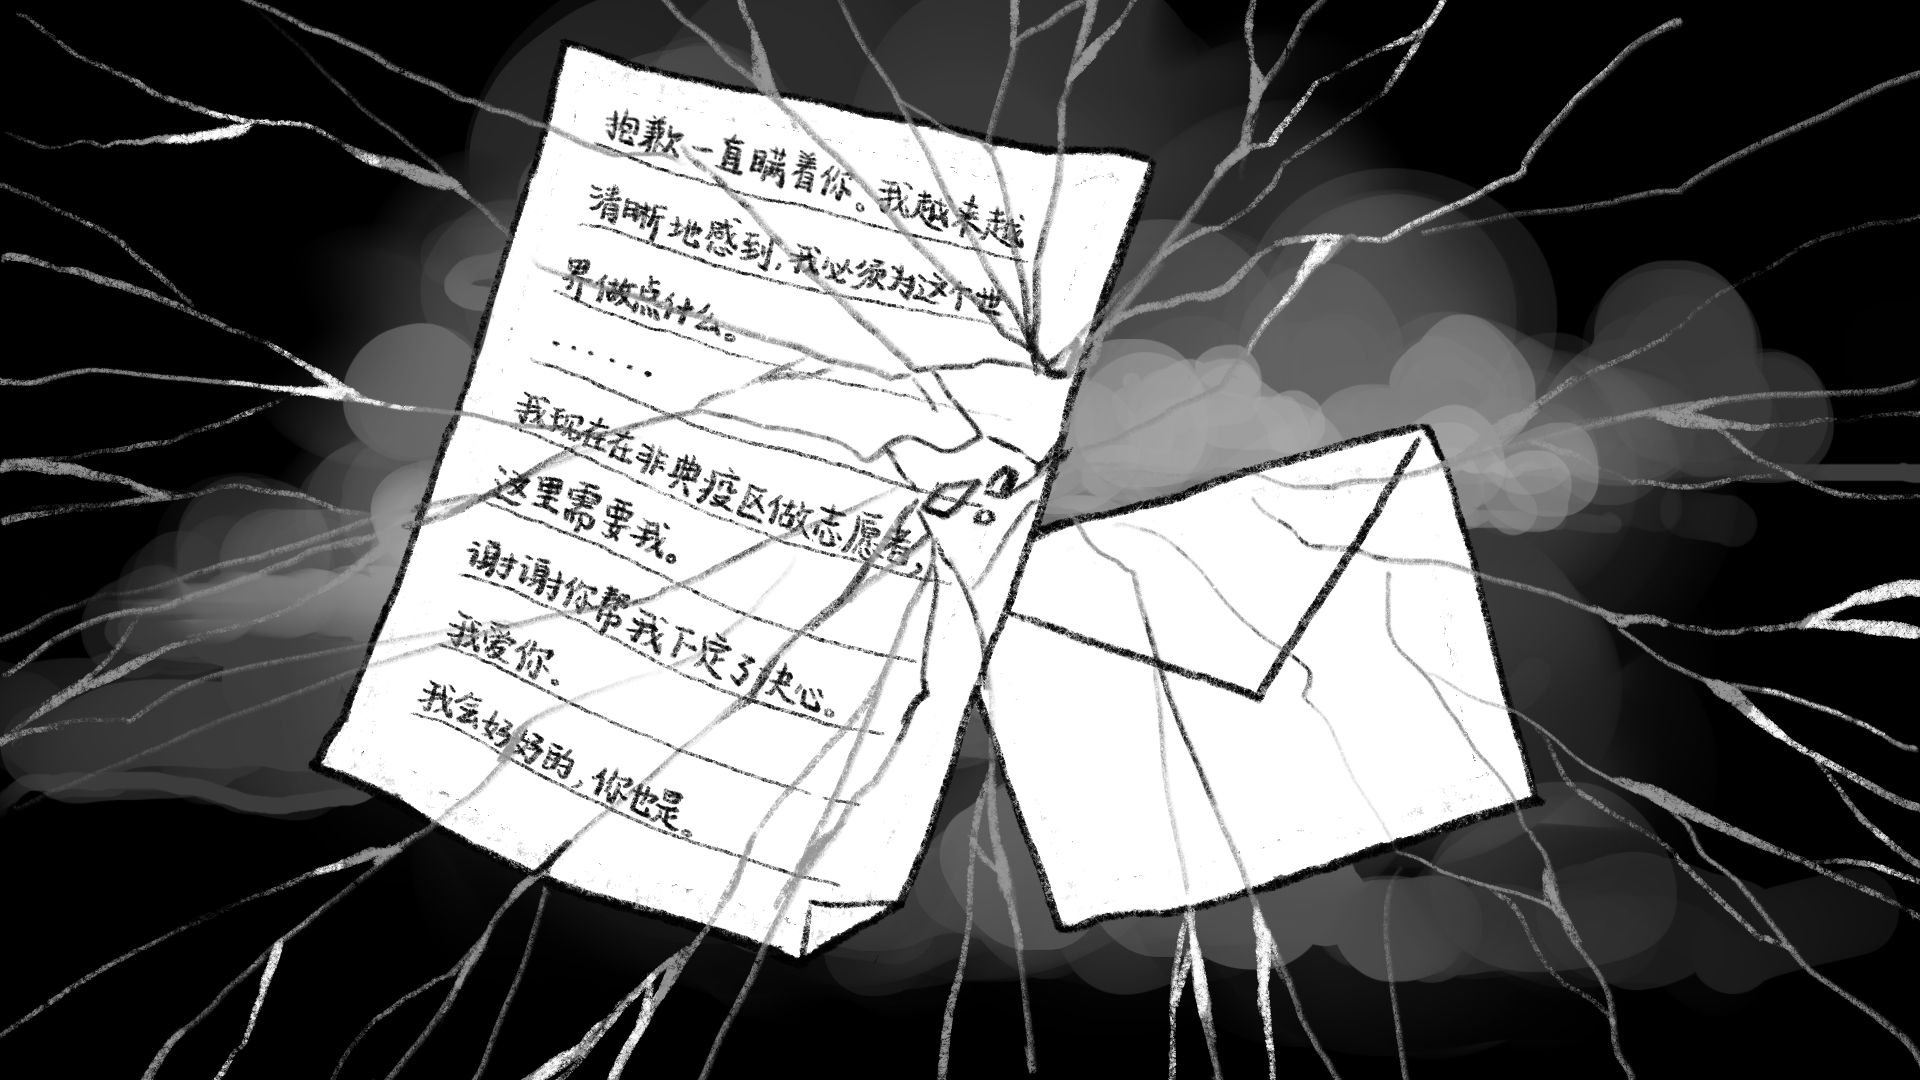 抱歉一直瞒着你。我越来越
清晰地感到,我必须为这个世
界做点什么。
......
我现在在非典疫区做志愿者,
这里需要我。
谢谢你帮我下定了决心。
我爱你。
我会好好的,你也是。